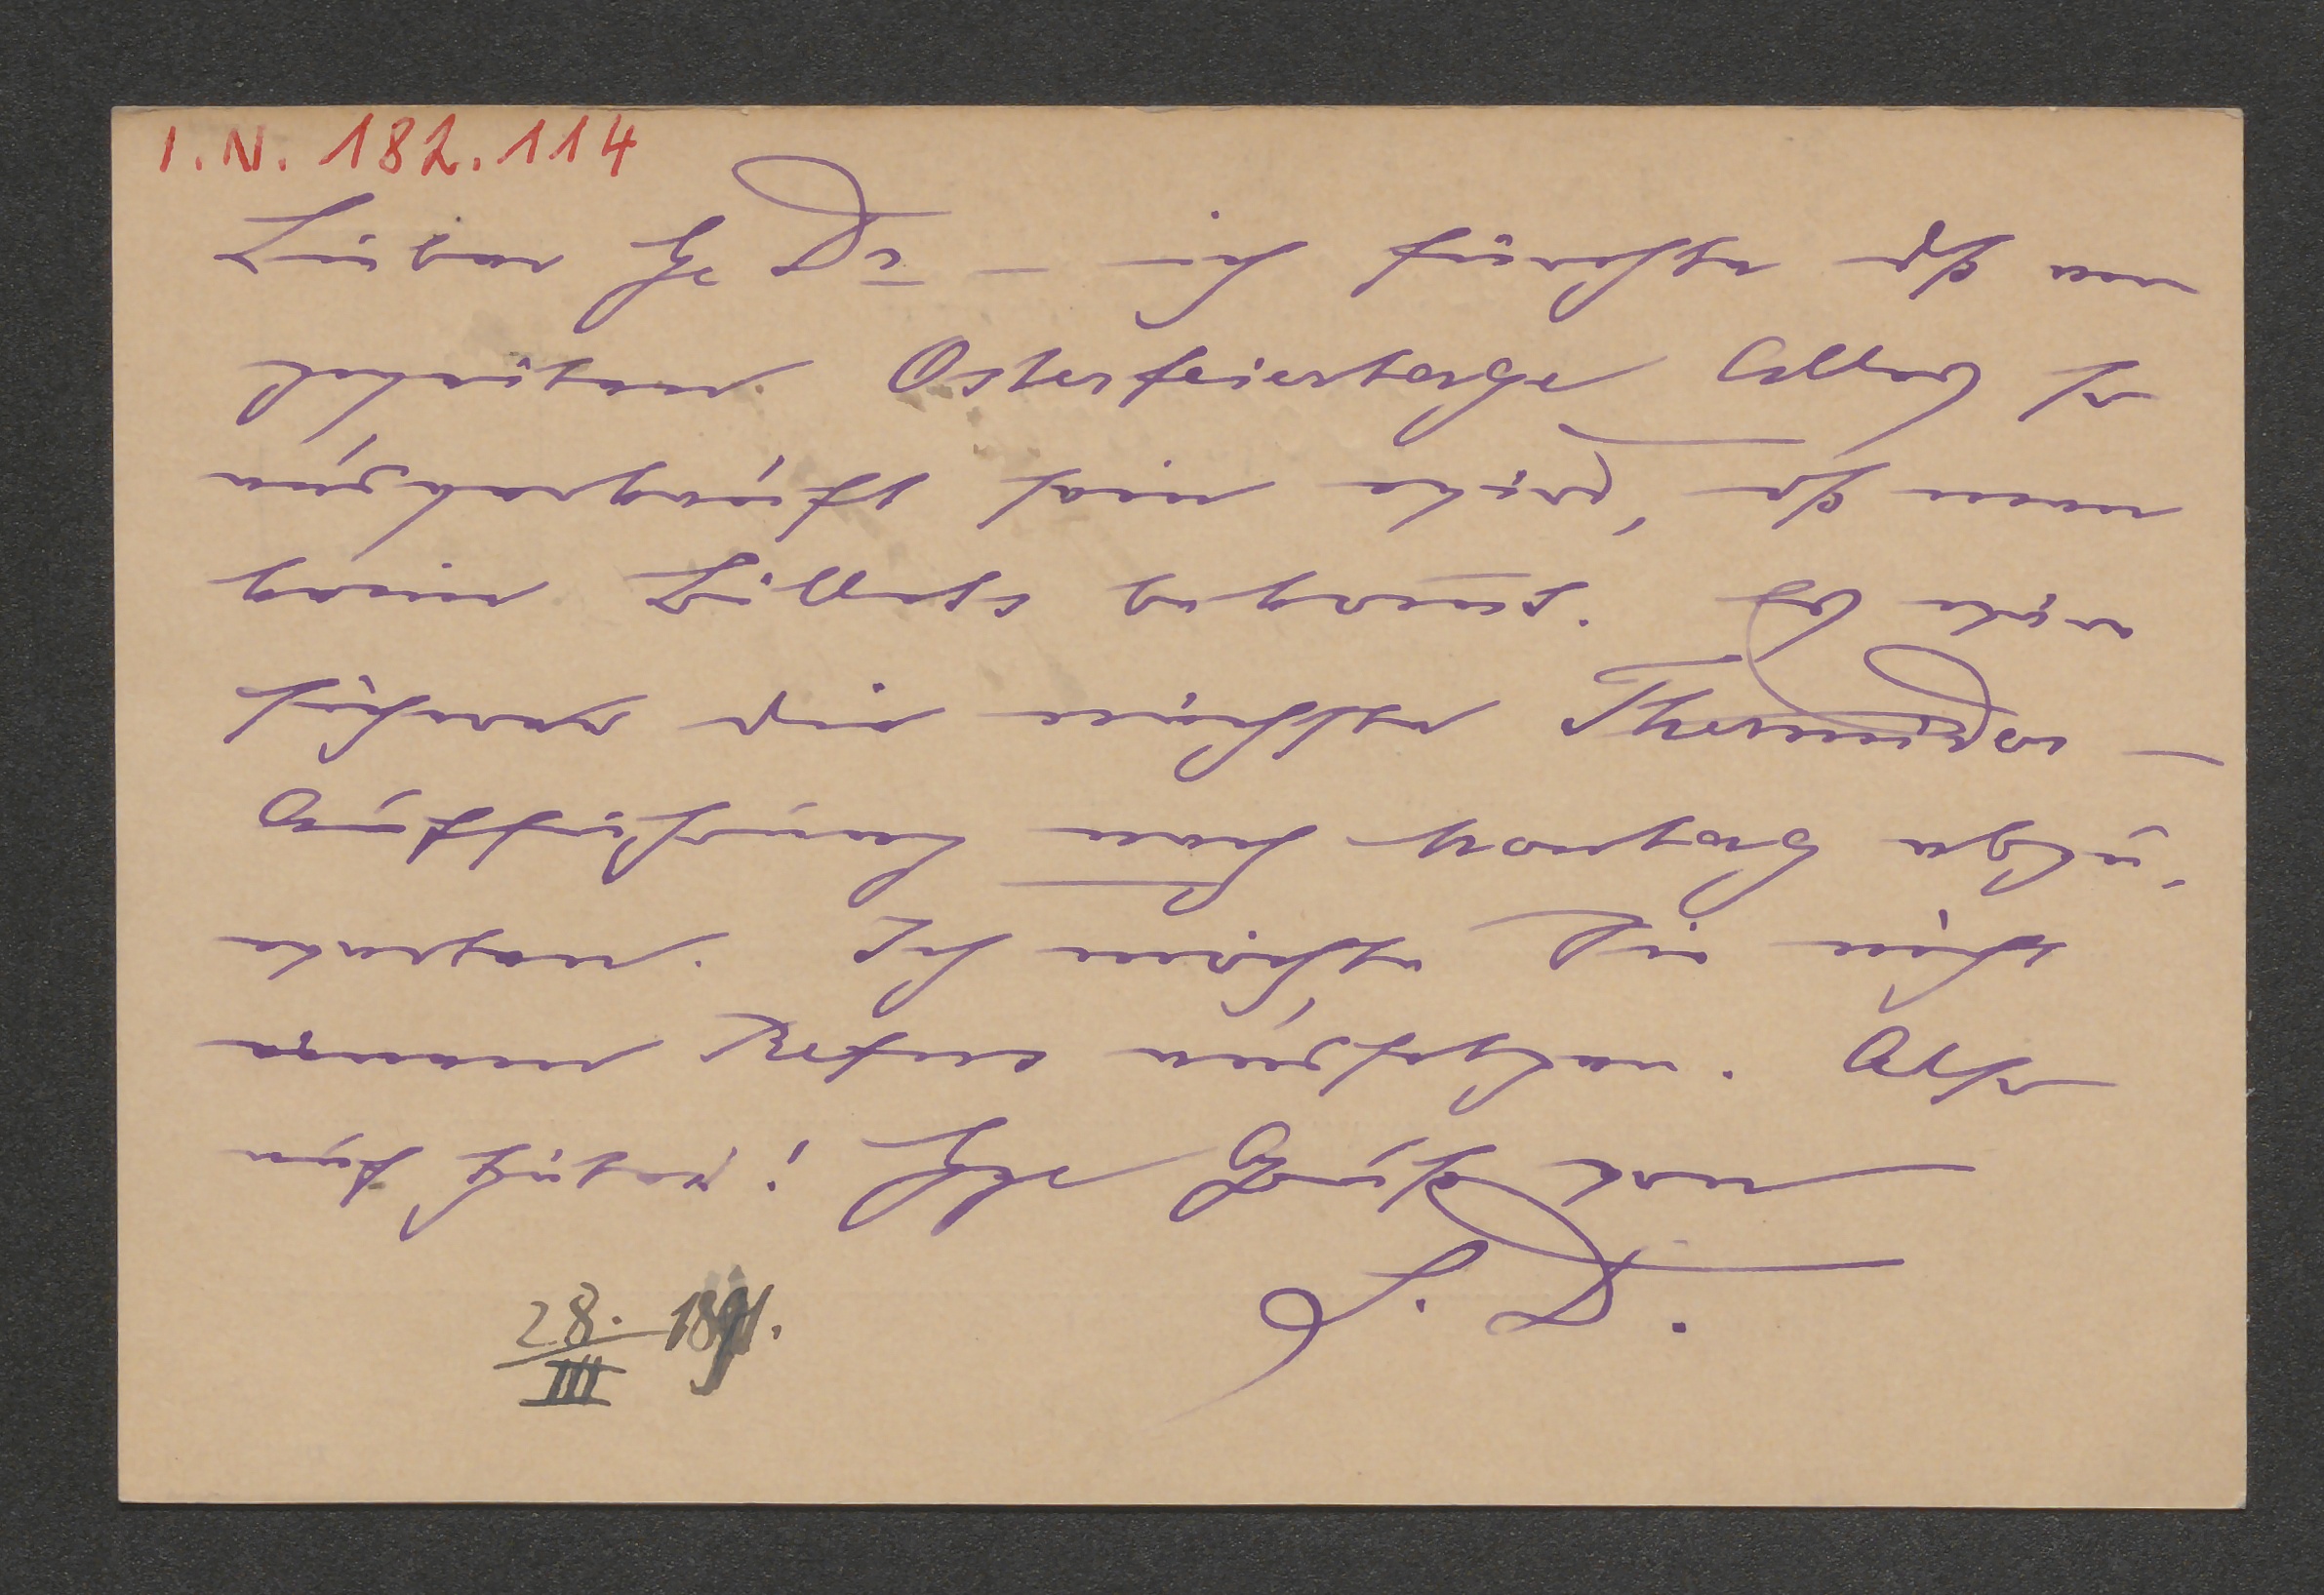 I.N. 182.114
Lieber H Dr – ich fürchte dß am
zweiten Osterfeiertage Alles so
ausverkauft sein wird, dß man
keine Billets bekom̅t. Es wäre
sicherer die nächste Thermidor-
Aufführung nach Montag abzu-
warten. Ich möchte Sie nicht
Also
auf später! Hzl Gruß von
28. III 1891.